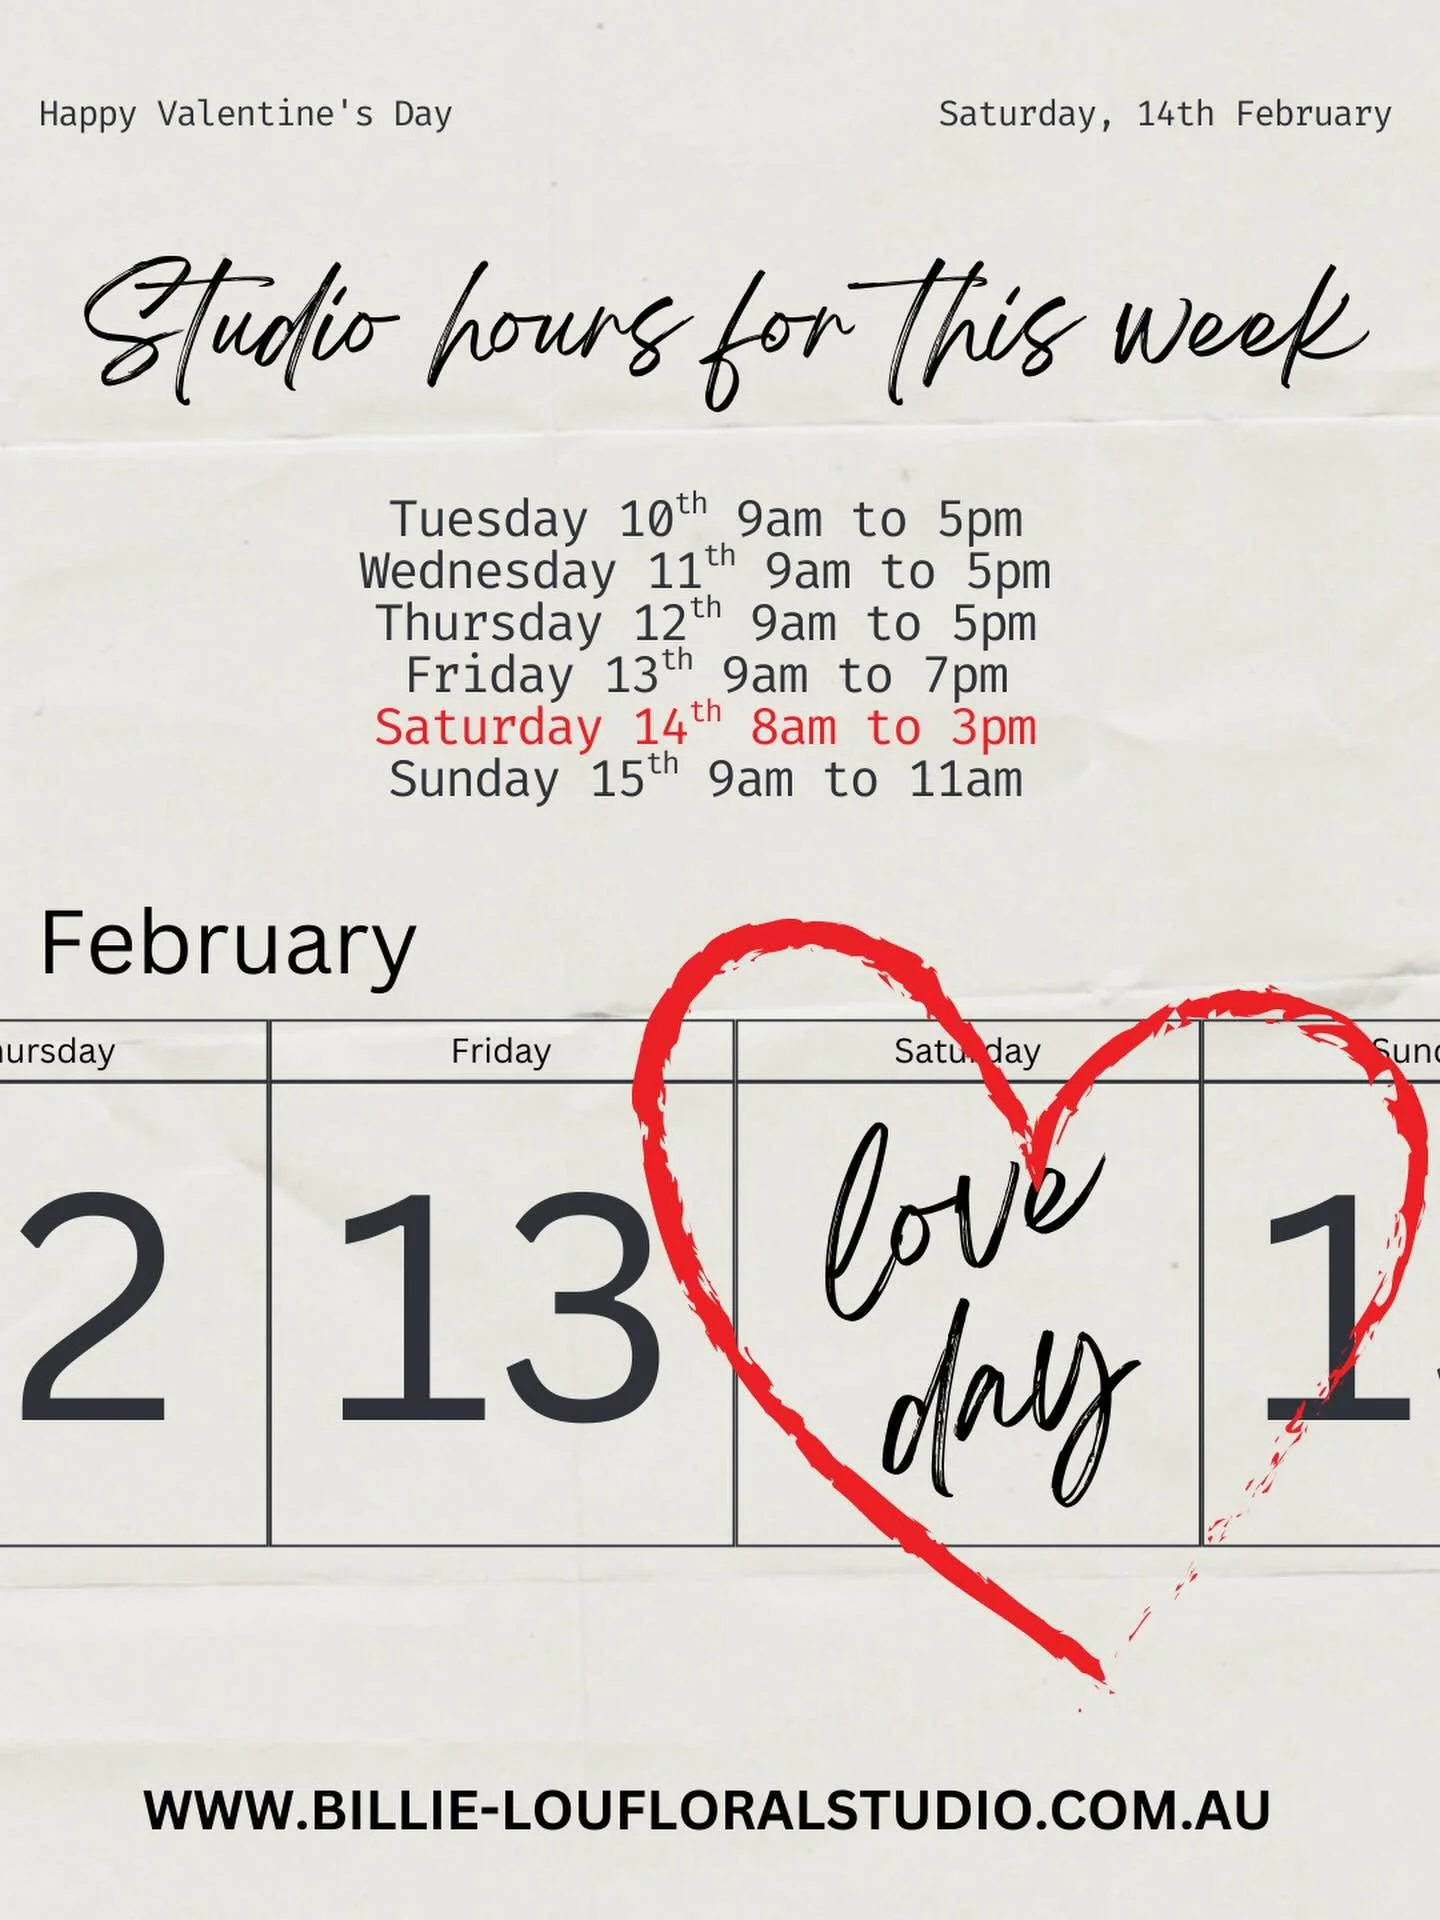 Happy Valentine's Day
Saturday, 14th February
Studio hours for this week
Tuesday 10th 9am to 5pm
Wednesday 11th 9am to 5pm
Thursday 12th 9am to 5pm
Friday 13th 9am to 7pm
Saturday 14th 8am to 3pm
Sunday 15th 9am to 11am
February
ursday Friday Saturday Sund
2 13 love day 1
WWW.BILLIE-LOUFLORALSTUDIO.COM.AU